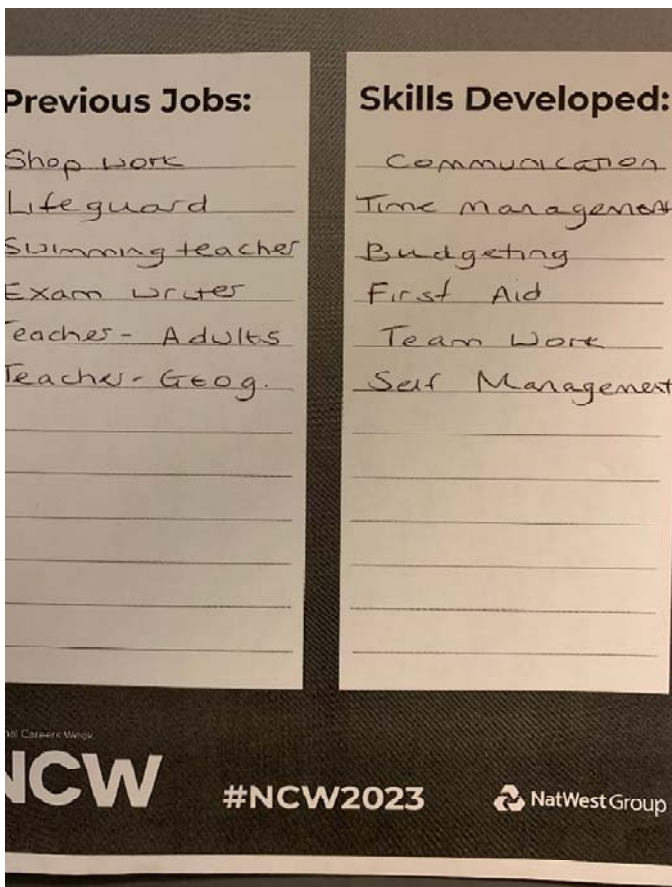 Previous Jobs:
Shop work
Lifeguard
Swimming teacher
Exam writer
Teacher - Adults
Teacher - Geog.
Skills Developed:
Communication
Time Management
Budgeting
First Aid
Team Work
Self Management
nal Careers Week
NCW
#NCW2023
NatWest Group